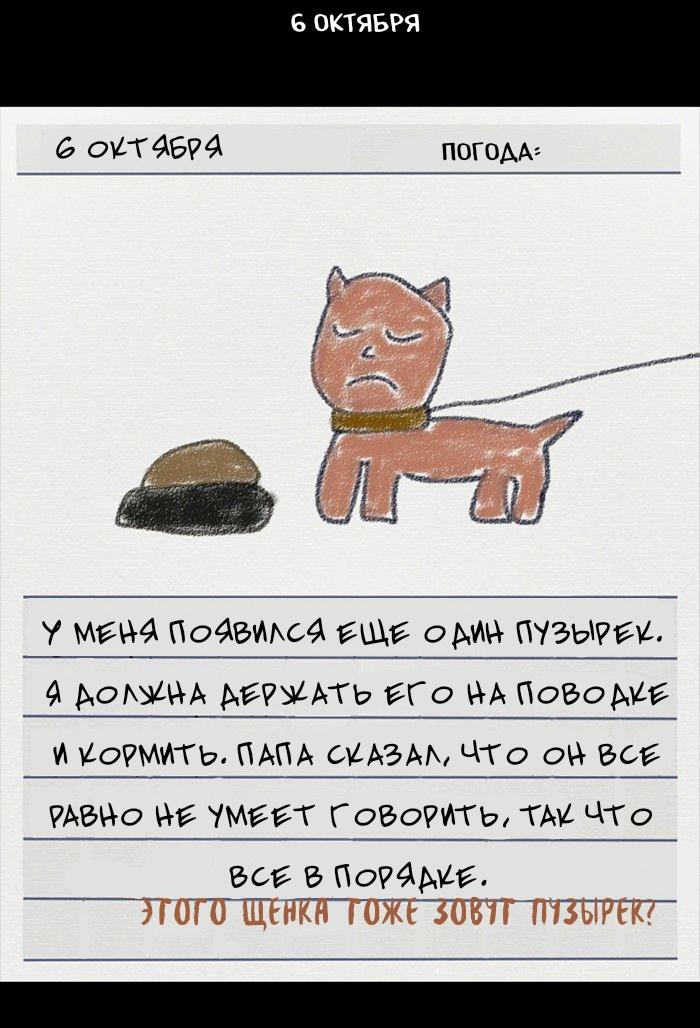 6 ОКТЯБРЯ
6 ОКТЯБРЯ ПОГОДА:
У МЕНЯ ПОЯВИЛСЯ ЕЩЕ ОДИН ПУЗЫРЕК.
Я ДОЛЖНА ДЕРЖАТЬ ЕГО НА ПОВОДКЕ
И КОРМИТЬ. ПАПА СКАЗАЛ, ЧТО ОН ВСЕ
РАВНО НЕ УМЕЕТ ГОВОРИТЬ, ТАК ЧТО
ВСЕ В ПОРЯДКЕ.
ЭТОГО ЩЕНКА ТОЖЕ ЗОВУТ ПУЗЫРЕК?